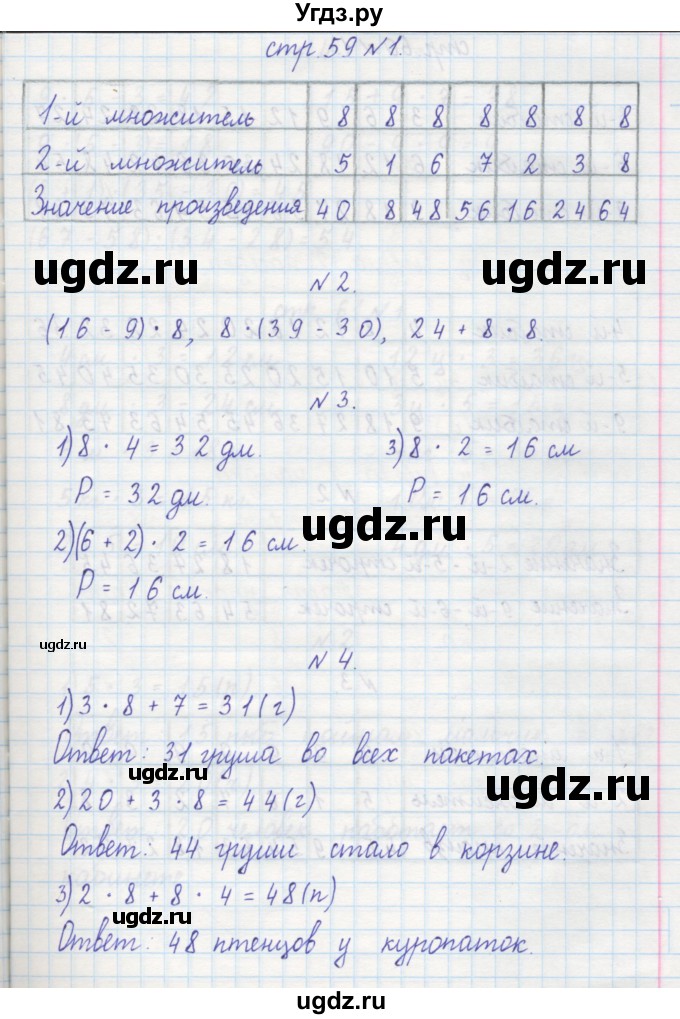 Угдз.ру
стр. 59 №1.
1-й множитель 8 8 8 8 8 8 8
2-й множитель 5 1 6 7 2 3 8
Значение произведения 40 8 48 56 16 24 64
ugdz.ru ugdz.ru
№ 2.
(16 - 9) · 8, 8 · (39 - 30), 24 + 8 · 8.
№ 3.
1) 8 · 4 = 32 дм. 3) 8 · 2 = 16 см
P = 32 дм. P = 16 см.
ugdz.ru
2) (6 + 2) · 2 = 16 см.
P = 16 см.
ugdz.ru
№ 4.
1) 3 · 8 + 7 = 31 (г)
Ответ: 31 груша во всех пакетах.
ugdz.ru ugdz.ru
2) 20 + 3 · 8 = 44 (г)
Ответ: 44 груши стало в корзине.
3) 2 · 8 + 8 · 4 = 48 (п)
ugdz.ru
Ответ: 48 птенцов у куропаток.
ugdz.ru